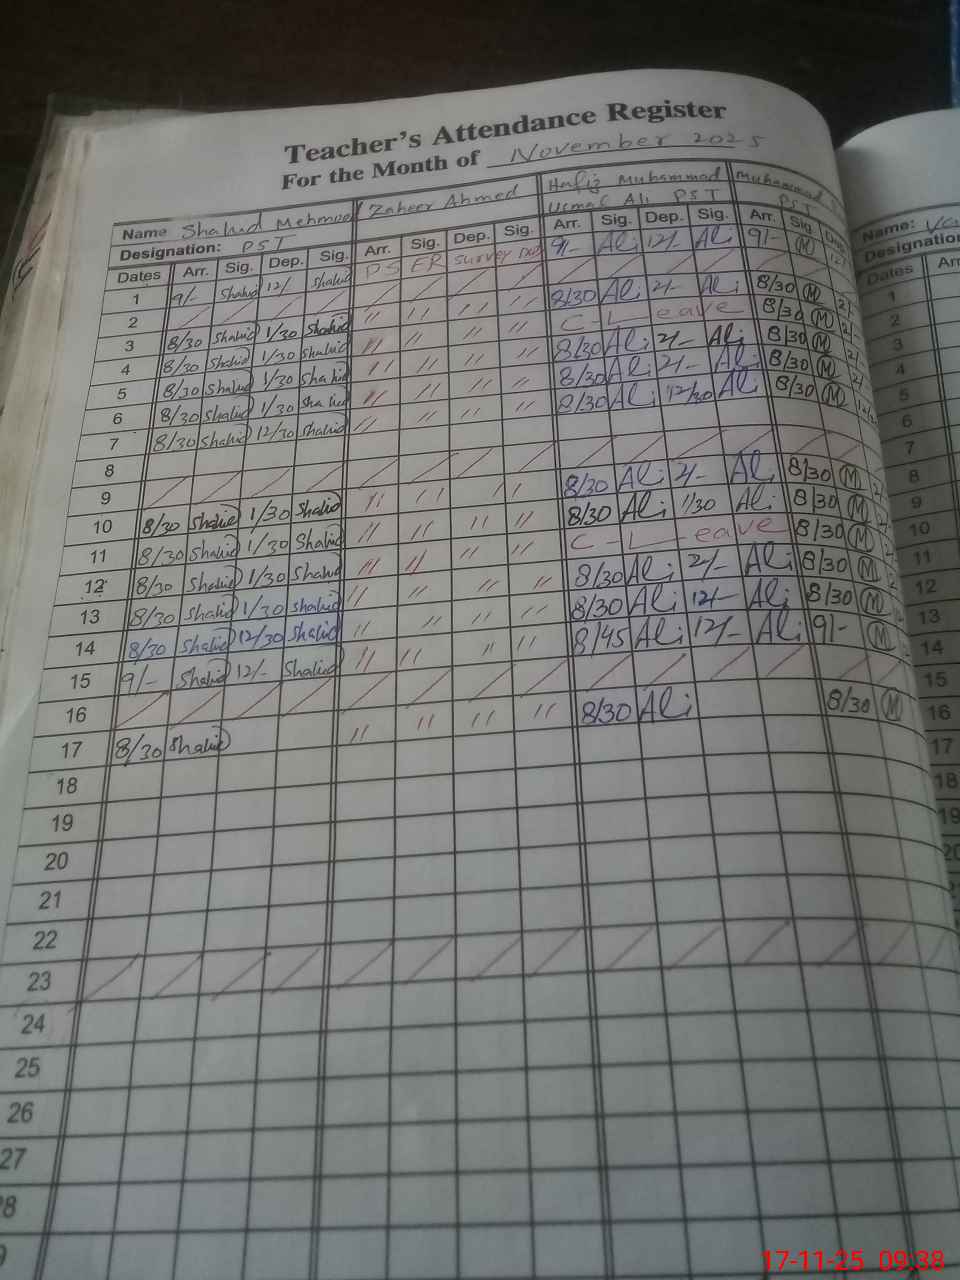 Teacher's Attendance Register
For the Month of November 2025
Name Shahid Mehmood Zaheer Ahmed Hafiz Muhammad Usmal Ali PST Muhammad PST
Designation: PST
Name:
Designation
Dates Arr. Sig. Dep. Sig. Arr. Sig. Dep. Sig. Arr. Sig. Dep. Sig. Arr. Sig Dep
Dates Arr
1 9/- Shahid 12/- Shahid PS ER survey 9/- Ali 12/- Ali 9/- M
2
3 8/30 Shahid 1/30 Shahid " " " " 8/30 Ali 2/- Ali 8/30 M 2/
4 8/30 Shahid 1/30 Shahid " " " " C-Leave 8/30 M 2/
5 8/30 Shahid 1/30 Shahid " " " " 8/30 Ali 2/- Ali 8/30 M 2/
6 8/30 Shahid 1/30 Shahid " " " " 8/30 Ali 2/- Ali 8/30 M 2/
7 8/30 Shahid 12/30 Shahid " " " " 8/30 Ali 12/30 Ali 8/30 M
8
9
10 8/30 Shahid 1/30 Shahid " " " 8/30 Ali 2/- Ali 8/30 M 2/
11 8/30 Shahid 1/30 Shahid " " " " 8/30 Ali 1/30 Ali 8/30 M 2/
12 8/30 Shahid 1/30 Shahid " " " " C-L-eave 8/30 M
13 8/30 Shahid 1/30 Shahid " " " " 8/30 Ali 2/- Ali 8/30 M
14 8/30 Shahid 12/30 Shahid " " " " 8/30 Ali 12/- Ali 8/30 M
15 9/- Shahid 12/- Shahid " " " " 8/45 Ali 12/- Ali 9/- M
16
17 8/30 Shahid " " " " 8/30 Ali 8/30 M
18
19
20
21
22
23
24
25
26
27
1
2
3
4
5
6
7
8
9
10
11
12
13
14
15
16
17
18
19
17-11-25 09:38